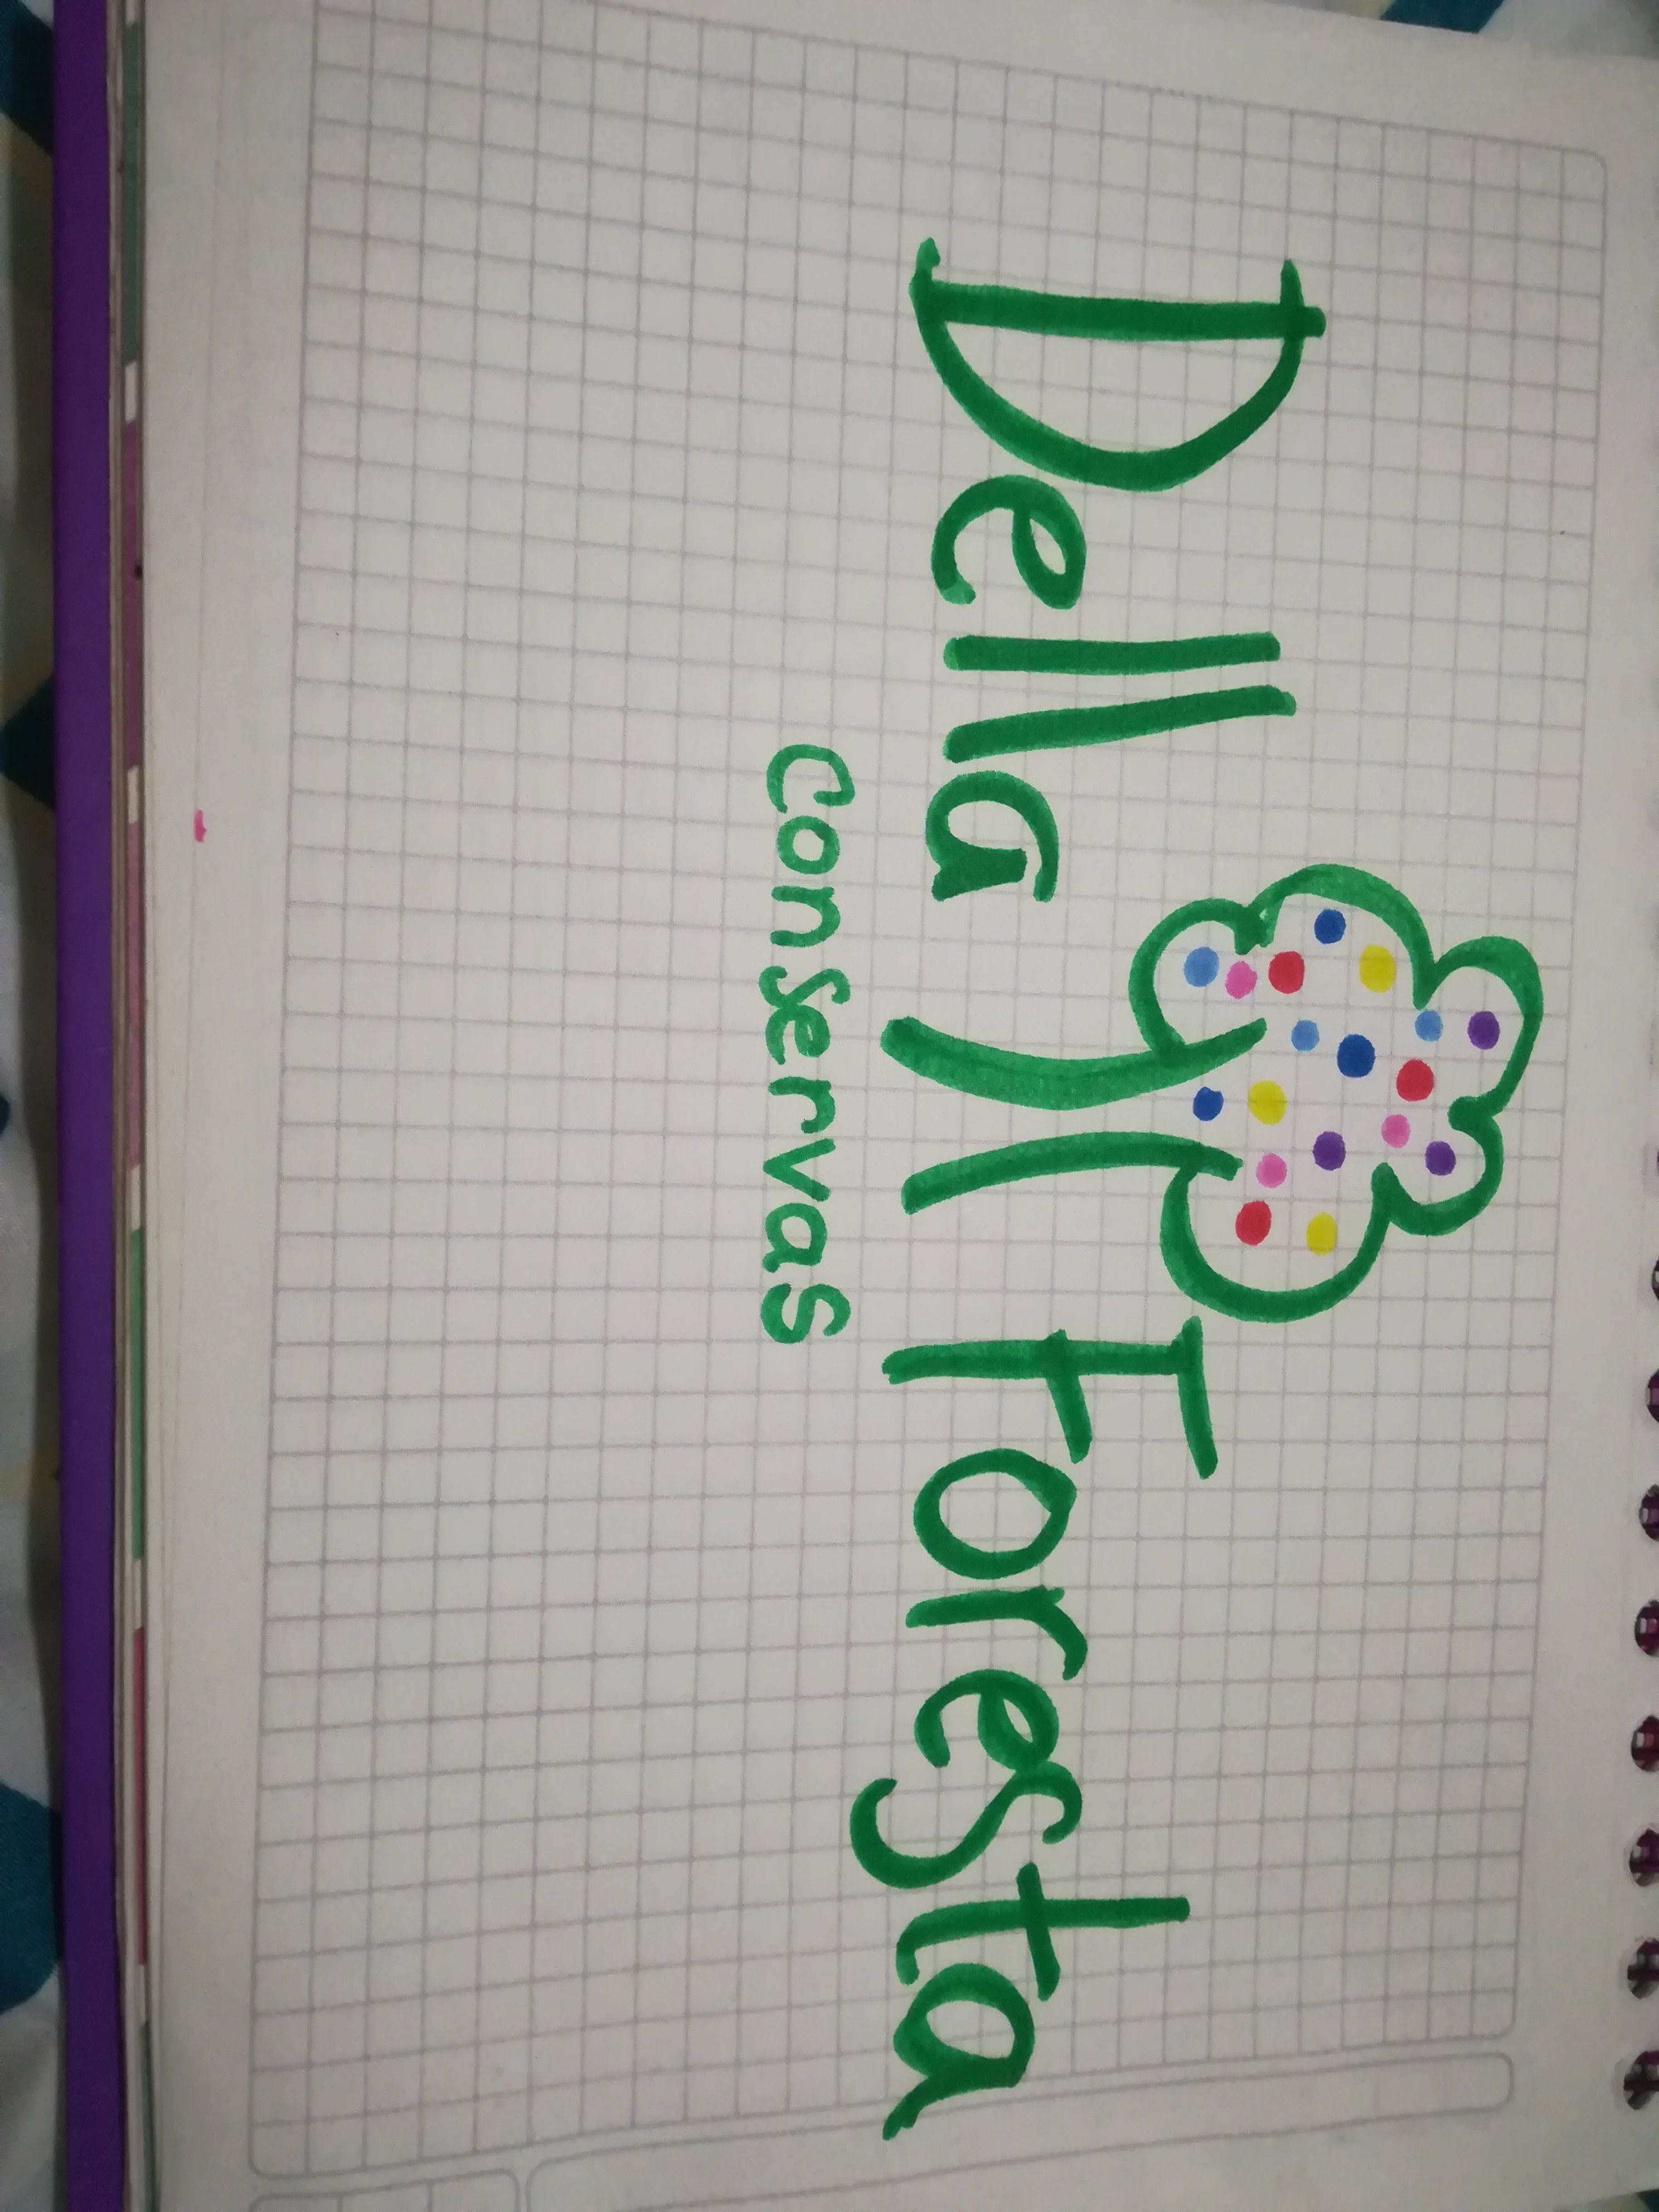 Della Foresta
Conservas